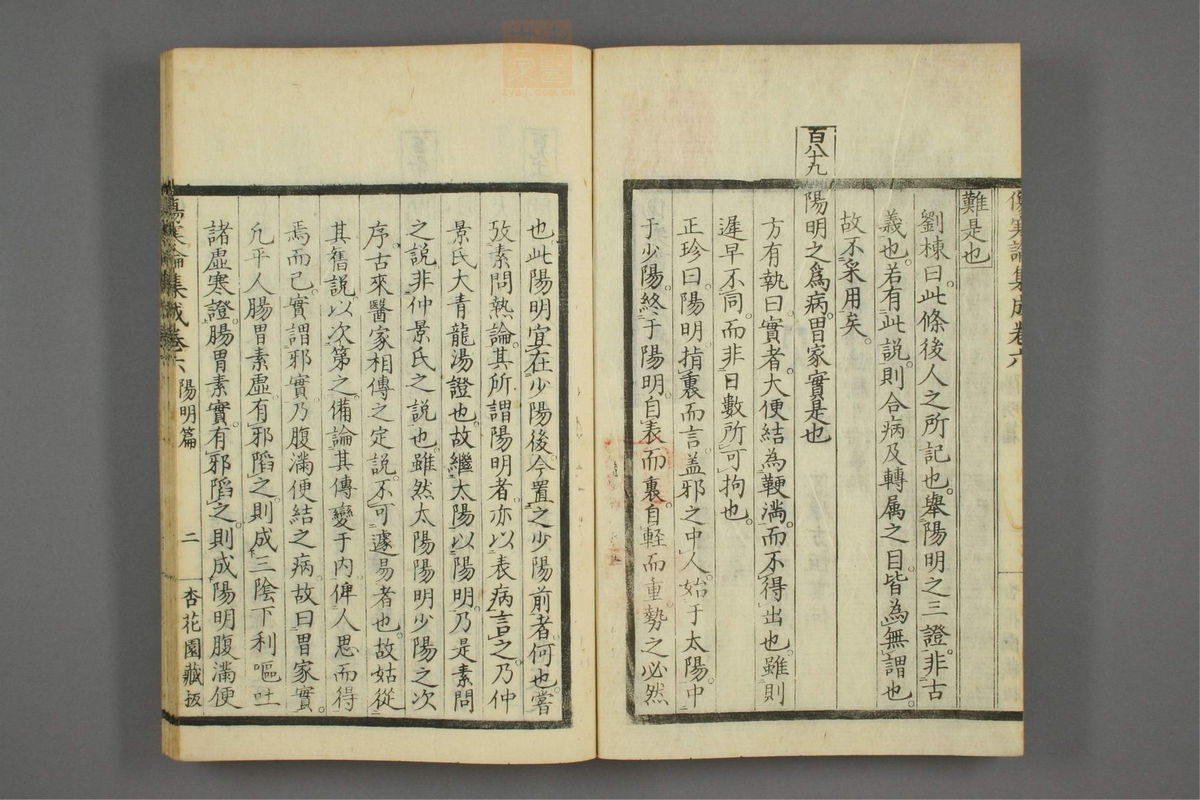 傷寒論集成卷六
難是也
劉棟曰此條後人之所記也舉陽明之三證非古
義也若有此說則合病及轉属之目皆為無謂也
故不采用矣
百八十九
陽明之爲病胃家實是也
方有執曰實者大便結為鞕満而不得出也雖則
遲早不同而非日數所可拘也
正珍曰陽明揹裏而言盖邪之中人始于太陽中
于少陽終于陽明自表而裏自軽而重勢之必然
也此陽明宜在少陽後今置之少陽前者何也嘗
攷素問熱論其所謂陽明者亦以表病言之乃仲
景氏大青龍湯證也故繼太陽以陽明乃是素問
之說非仲景氏之說也雖然太陽陽明少陽之次
序古來醫家相傳之定說不可遽易者也故姑從
其舊說以次第之備論其傳變于内俾人思而得
焉而已實謂邪實乃腹滿便結之病故曰胃家實
凢平人腸胃素虛有邪䧟之則成三陰下利嘔吐
諸虛寒證腸胃素實有邪䧟之則成陽明腹滿便
傷寒論集成卷六
陽明篇
二
杏花園藏板